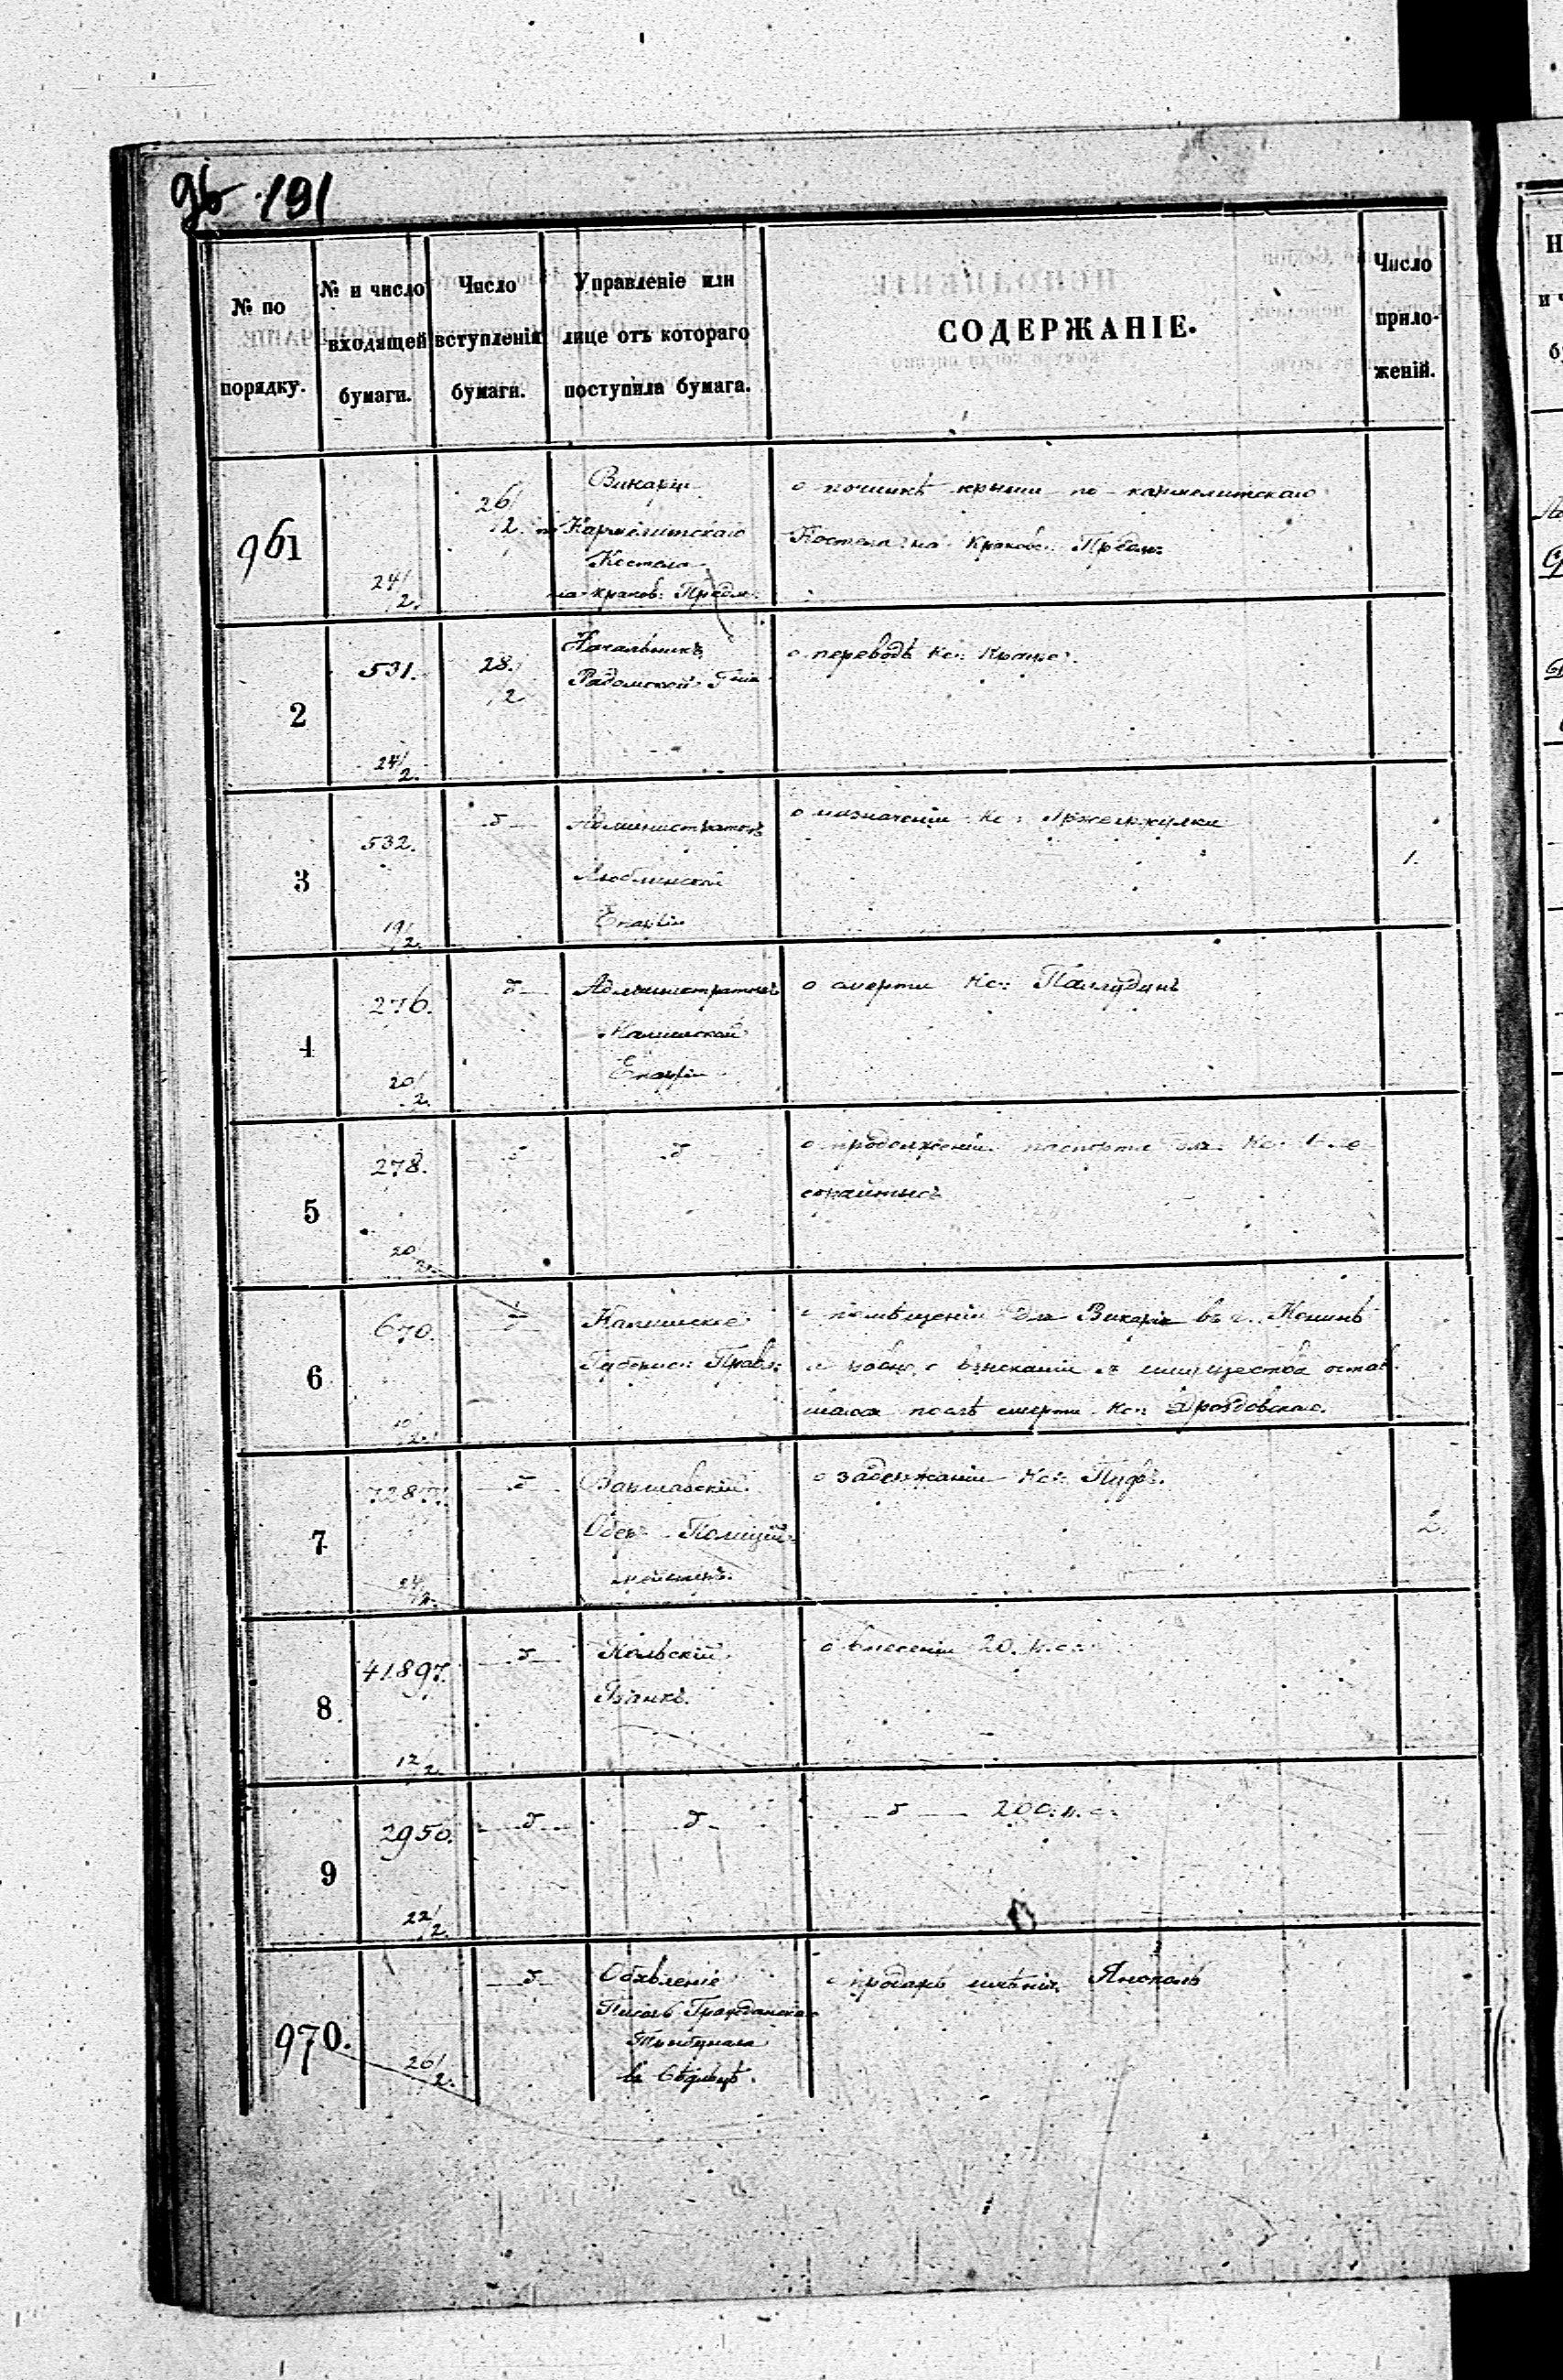 96 191
№ по порядку.
№ и число входящей бумаги.
Число вступленія бумаги.
Управленіе или лице отъ котораго поступила бумага.
СОДЕРЖАНІЕ.
Число прило-
женій.
961
24/2.
26/2.
Викарій
Кармелитскаго
Костела
на Краков: Предм:
о починкѣ крыши по-кармелитскаго
Костела на Краков: Предм:
2
531.
24/2.
28./2
Начальникъ
Радомской Гніи
о переводѣ Кс:
3
532.
19/2.
Администраторъ
Люблинской
Епархіи
о назначеніи Кс:
1.
4
276.
20/2.
Администраторъ
Калишской
Епархіи
о смерти Кс:
5
278.
20/2.
о продолженіи паспорта для Кс:
6
670.
Калишское
Губернс: Правл:
о помѣщеніи для Викарія въ г. Конинѣ
и взысканіи имущества остав
шагося послѣ смерти Кс: Дроздовскаго.
7
7287.
24/2.
Варшавскій
Оберъ-Полицій-
мейстеръ.
о задержаніи Кс:
2.
8
41897.
12/2
Польскій
Банкъ.
о внесеніи 20. к. с.
9
2950.
22/2.
200. к. с.
970.
26/2.
Обявленіе
Писаръ Гражданска
Трибунала
въ Сѣдльцѣ.
о продажѣ имѣнія Янополь